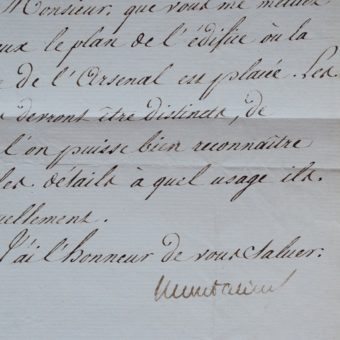 Monsieur, que vous me mettiez
eux le plan de l'édifice où la
de l'Arsenal est placée. Les
devront être distincts, de
l'on puisse bien reconnaître
les détails à quel usage ils
uellement.
J'ai l'honneur de vous saluer.